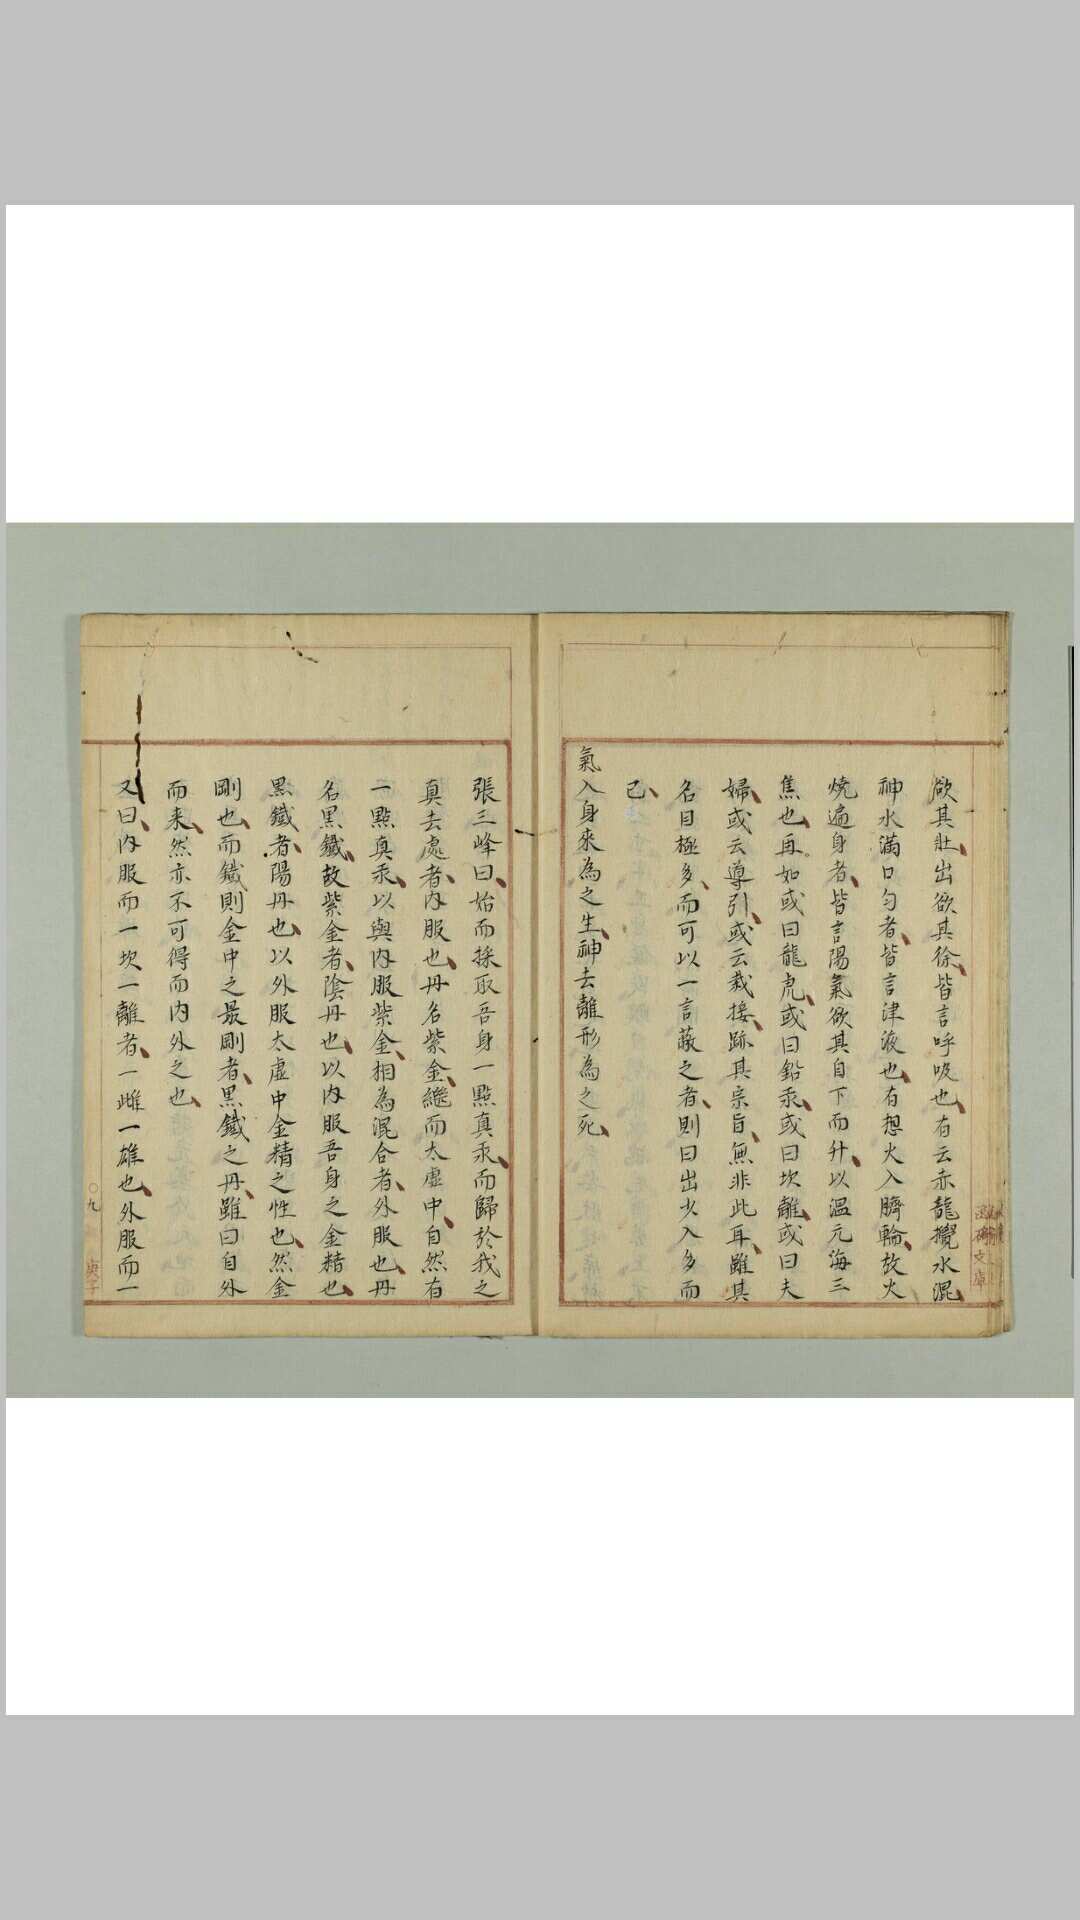 欲其壯、出欲其徐、皆言呼吸也、有云赤龍攪水混、
神水滿口勻者、皆言津液也、有想火入臍輪、放火
燒遍身者、皆言陽氣欲其自下而升、以溫元海三
焦也、再如或曰龍虎、或曰鉛汞、或曰坎離、或曰夫
婦、或云導引、或云栽接、跡其宗旨、無非此耳、雖其
名目極多、而可以一言蔽之者、則曰出少入多而
已、
氣入身來為之生、神去離形為之死、
張三峰曰、始而採取吾身一點真汞、而歸於我之
真去處者、內服也、丹名紫金、繼而太虛中、自然有
一點真汞、以與內服紫金、相為混合者、外服也、丹
名黑鐵、故紫金者、陰丹也、以內服吾身之金精也、
黑鐵者、陽丹也、以外服太虛中金精之性也、然金
剛也、而鐵則金中之最剛者、黑鐵之丹、雖曰自外
而来、然亦不可得而內外之也、
又曰、內服而一坎一離者、一雌一雄也、外服而一
〇九
庚子
文庫